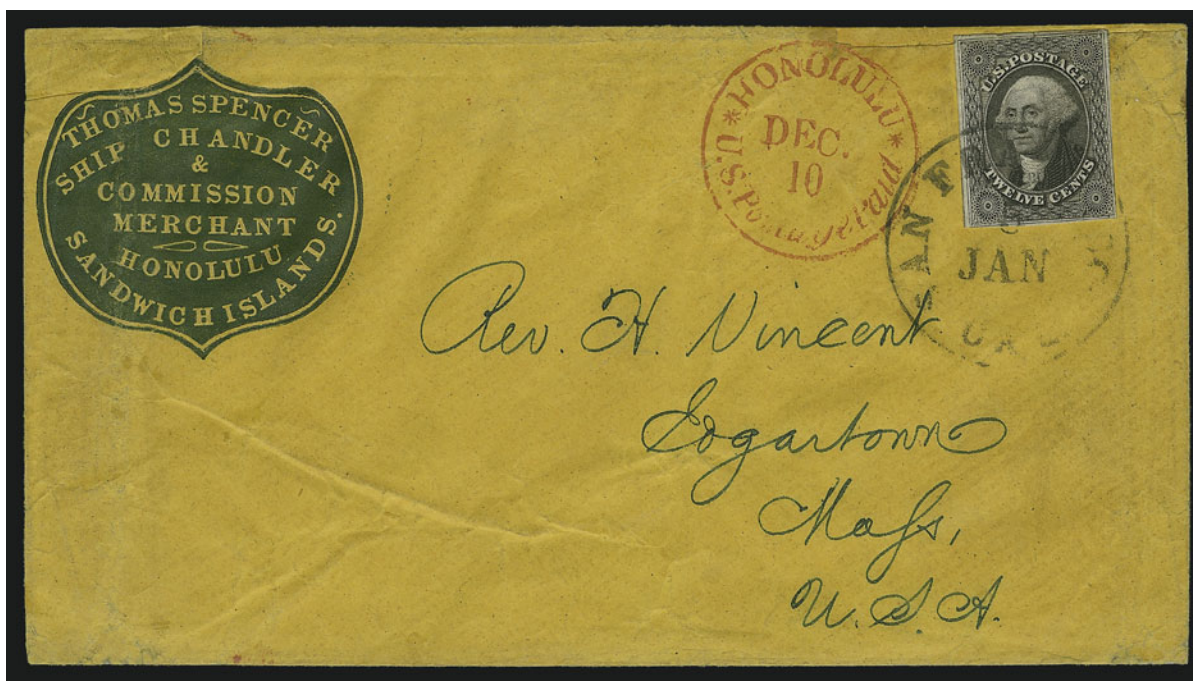 THOMAS SPENCER
SHIP CHANDLER
&
COMMISSION
MERCHANT
HONOLULU
SANDWICH ISLANDS.
*HONOLULU*
DEC.
10
U.S. Postage Paid
U.S. POSTAGE
TWELVE CENTS
SAN F
JAN
CAL
Rev. H. Vincent
Edgartown
Maſs,
U.S.A.